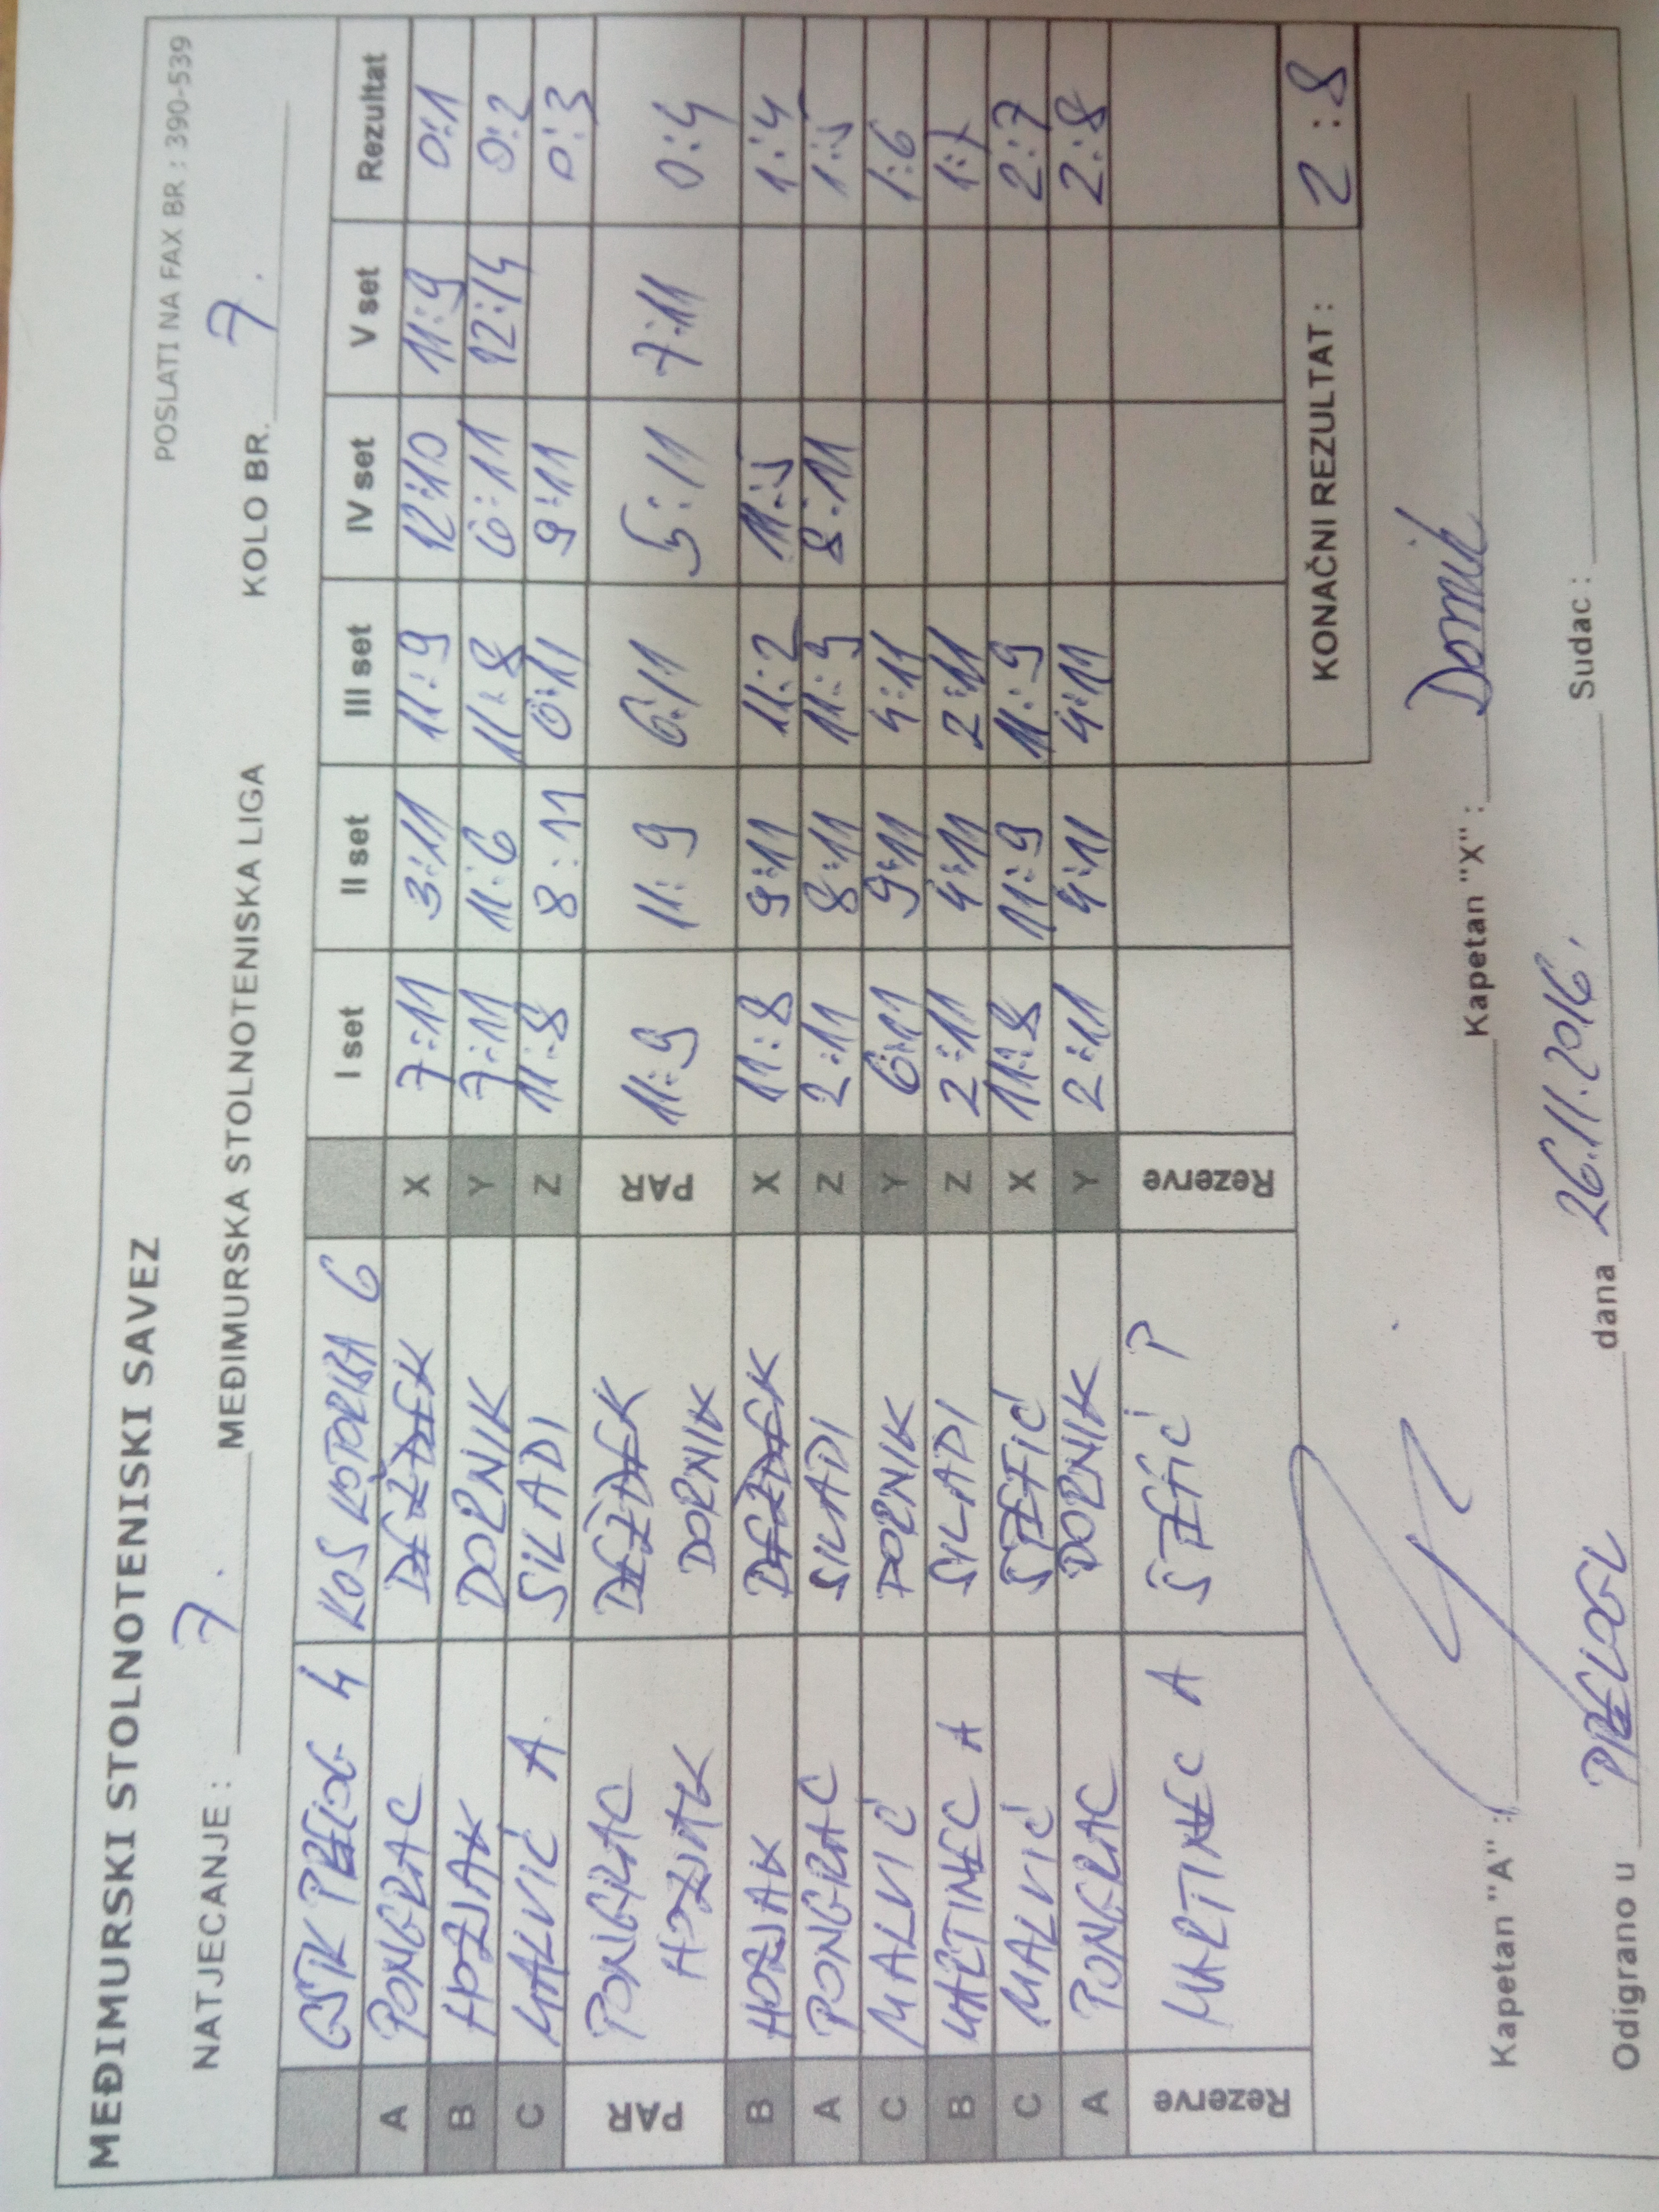 MEĐIMURSKI STOLNOTENISKI SAVEZ
POSLATI NA FAX BR : 390-539
NATJECANJE : 7. MEĐIMURSKA STOLNOTENISKA LIGA KOLO BR. 7.
GSTK PRELOG 4 KOS KOTORIBA 6 I set II set III set IV set V set Rezultat
A PONGRAC DEŽĐEK X 7:11 3:11 11:9 12:10 11:9 0:1
B HOZJAK DORNIK Y 7:11 11:6 11:8 6:11 12:14 0:2
C MALVIĆ A. SILADI Z 11:8 8:11 6:11 9:11 0:3
PAR PONGRAC DEŽĐEK PAR 11:9 11:9 6:11 5:11 7:11 0:4
HOZJAK DORNIK
B HOZJAK DEŽĐEK X 11:8 9:11 11:2 11:5 1:4
A PONGRAC SILADI Z 2:11 8:11 11:9 8:11 1:5
C MALVIĆ DORNIK Y 6:11 9:11 4:11 1:6
B MARTINEC A SILADI Z 2:11 4:11 2:11 1:7
C MALVIĆ ŠTEFIĆ X 11:8 11:9 11:9 2:7
A PONGRAC DORNIK Y 2:11 4:11 4:11 2:8
Rezerve MARTINEC A ŠTEFIĆ P Rezerve
KONAČNI REZULTAT : 2:8
Kapetan "A" : Kapetan "X" : Dornik
Odigrano u PRELOGU dana 26.11.2016. Sudac :